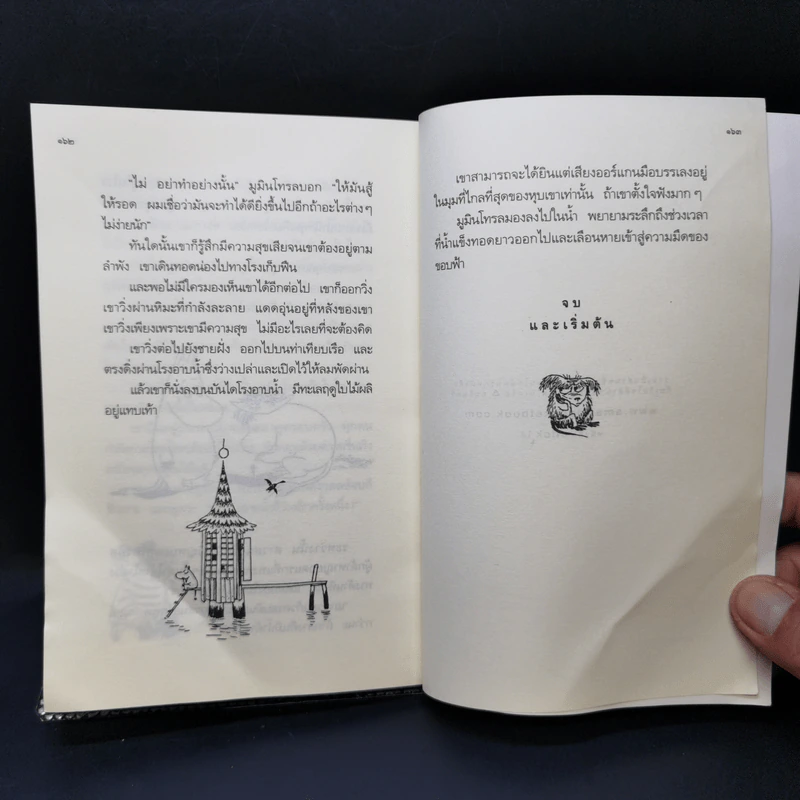 ๑๖๒
"ไม่ อย่าทำอย่างนั้น" มูมินโทรลบอก "ให้มันสู้
ให้รอด ผมเชื่อว่ามันจะทำได้ดียิ่งขึ้นไปอีกถ้าอะไรต่างๆ
ไม่ง่ายนัก"
ทันใดนั้นเขาก็รู้สึกมีความสุขเสียจนเขาต้องอยู่ตาม
ลำพัง เขาเดินทอดน่องไปทางโรงเก็บฟืน
และพอไม่มีใครมองเห็นเขาได้อีกต่อไป เขาก็ออกวิ่ง
เขาวิ่งผ่านหิมะที่กำลังละลาย แดดอุ่นอยู่ที่หลังของเขา
เขาวิ่งเพียงเพราะเขามีความสุข ไม่มีอะไรเลยที่จะต้องคิด
เขาวิ่งต่อไปยังชายฝั่ง ออกไปบนท่าเทียบเรือ และ
ตรงดิ่งผ่านโรงอาบน้ำซึ่งว่างเปล่าและเปิดไว้ให้ลมพัดผ่าน
แล้วเขาก็นั่งลงบนบันไดโรงอาบน้ำ มีทะเลฤดูใบไม้ผลิ
อยู่แทบเท้า
๑๖๓
เขาสามารถจะได้ยินแต่เสียงออร์แกนมือบรรเลงอยู่
ในมุมที่ไกลที่สุดของหุบเขาเท่านั้น ถ้าเขาตั้งใจฟังมาก ๆ
มูมินโทรลมองลงไปในน้ำ พยายามระลึกถึงช่วงเวลา
ที่น้ำแข็งทอดยาวออกไปและเลือนหายเข้าสู่ความมืดของ
ขอบฟ้า
จบ
และเริ่มต้น